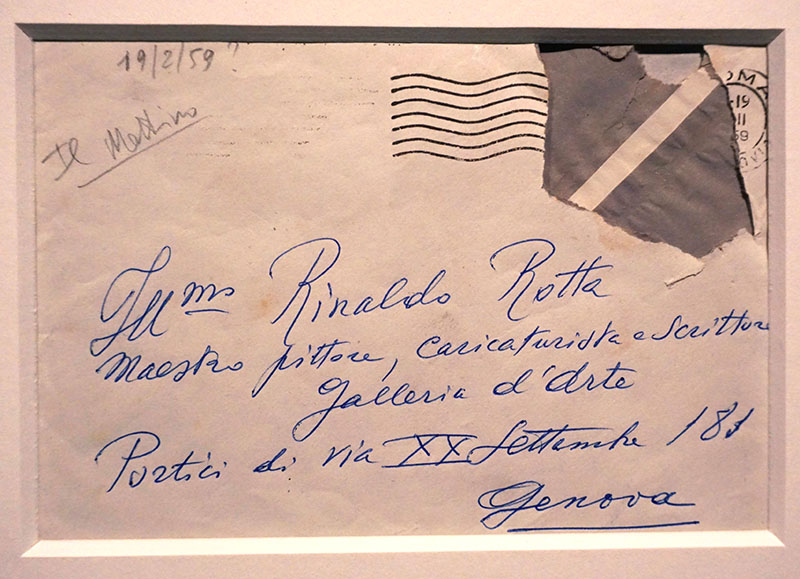 19/2/59"
Il Mattino
OMA
-19
II
59
Ill mo Rinaldo Rotta
Maestro pittore, caricaturista e scrittore
Galleria d'Arte
Portici di via XX Settembre 181
Genova